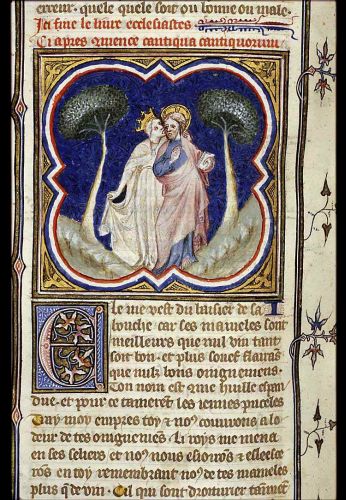 erreur. quele quele soit ou bonne ou male.
Ici fine le liure ecclesiastes
Ci apres commence cantiqua canticorum
le me vest du baisier de sa
bouche car ses mameles sont
meilleures que nul vin tant
soit bon. et plus souef flairans
que nulz bons oignemens.
Ton nom est come huille espan
due. et pour ce tamerent les iennes puceles
Tray moy empres toy et nous courrons a lo
deur de tes oniguemens. Li roys me mena
en ses celiers et nous nous esioirons et esleece
rons en toy remembrant nos de tes mameles
plus que de vin. Cil qui sont droiturier taiment